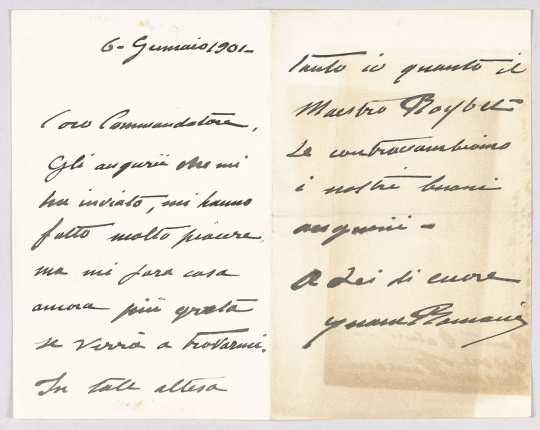 6- Gennaio 1901-
Caro Commendatore,
Gli augurii che mi
ha inviato, mi hanno
fatto molto piacere,
ma mi farà cosa
ancora più grata
se verrà a trovarmi.
In tale attesa
tanto io quanto il
Maestro Roybet
Le contracambiamo
i nostri buoni
augurii -
A Lei di cuore
Juana Romani